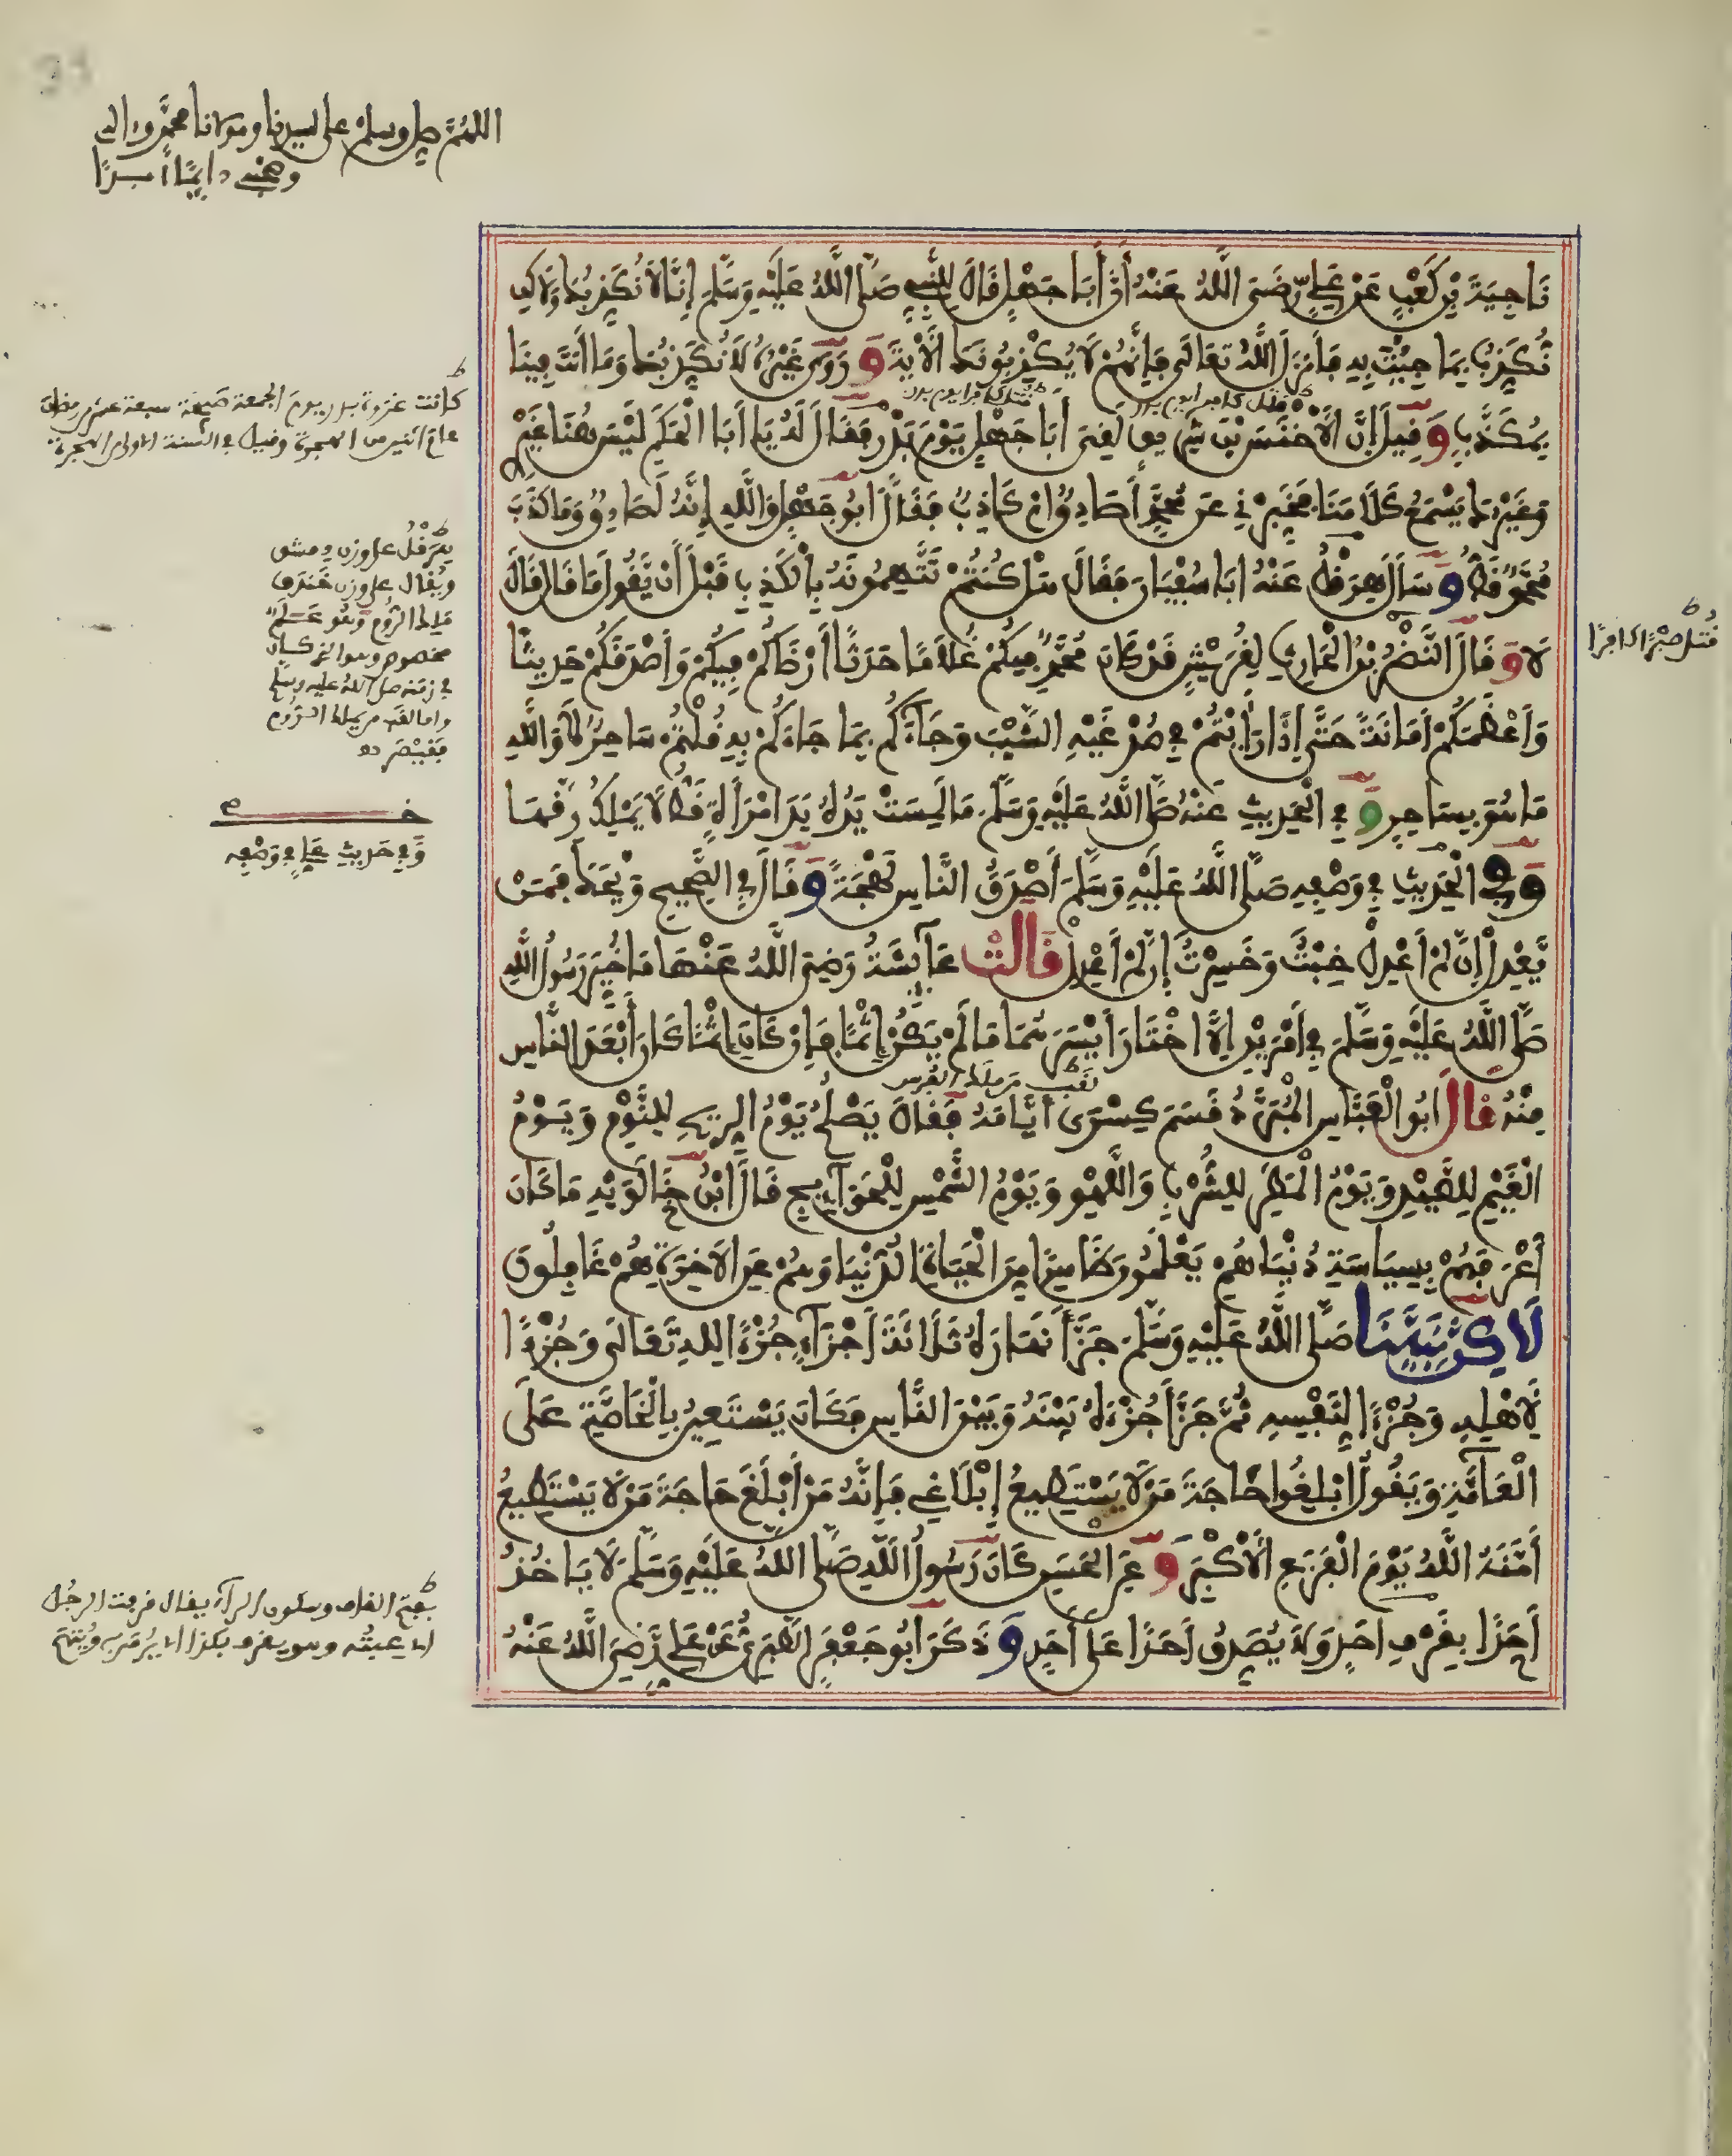 اللهم صل وسلم على سيدنا ومولانا محمد واله
وصحبه دايما أبدا
نَاجِيَةَ بْنِ كَعْبٍ عَنْ عَلِيٍّ رَّضِيَ اللَّهُ عَنْهُ أَنَّ أَبَا جَهْلٍ قَالَ لِلنَّبِيِّ صَلَّى اللَّهُ عَلَيْهِ وَسَلَّمَ إِنَّا لَا نُكَذِّبُكَ وَلَاكِن
نُّكَذِّبُ بِمَا جِئْتَ بِهِ فَأَنزَلَ اللَّهُ تَعَالَى فَإِنَّهُمْ لَا يُكْذِبُونَكَ الْآيَةَ وَرَوَى غَيْرُهُ لَا نُكَذِّبُكَ وَمَا أَنْتَ فِينَا
قتل كافرا يوم بدر
بِمُكَذَّبٍ وَقِيلَ إِنَّ الْأَخْنَسَ بْنَ شَرِيقٍ لَقِيَ أَبَا جَهْلٍ يَوْمَ بَدْرٍ فَقَالَ لَهُ يَا أَبَا الْحَكَمِ لَيْسَ هُنَا غَيْرِي
وَغَيْرُكَ يَسْمَعُ كَلَامَنَا تُخْبِرُنِي عَن مُّحَمَّدٍ أَصَادِقٌ أَمْ كَاذِبٌ فَقَالَ أَبُو جَهْلٍ وَاللَّهِ إِنَّهُ لَصَادِقٌ وَمَا كَذَبَ
مُحَمَّدٌ قَطُّ وَسَأَلَ هِرَقْلُ عَنْهُ أَبَا سُفْيَانَ فَقَالَ هَلْ كُنْتُمْ تَتَّهِمُونَهُ بِالْكَذِبِ قَبْلَ أَنْ يَّقُولَ مَا قَالَ قَالَ
لَا وَقَالَ النَّضْرُ بْنُ الْحَارِثِ لِقُرَيْشٍ قَدْ كَانَ مُحَمَّدٌ فِيكُمْ غُلَامًا حَدَثًا أَرْضَاكُمْ فِيكُمْ وَأَصْدَقَكُمْ حَدِيثًا
وَأَعْظَمَكُمْ أَمَانَةً حَتَّى إِذَا رَأَيْتُمْ فِي صُدْغَيْهِ الشَّيْبَ وَجَاءَكُم بِمَا جَاءَكُمْ بِهِ قُلْتُمْ سَاحِرٌ لَا وَاللَّهِ
مَا هُوَ بِسَاحِرٍ وَفِي الْحَدِيثِ عَنْهُ صَلَّى اللَّهُ عَلَيْهِ وَسَلَّمَ مَا لَمَسَتْ يَدُهُ يَدَ امْرَأَةٍ قَطُّ لَا يَمْلِكُ رِقَّهَا
وَفِي الْحَدِيثِ فِي وَصْفِهِ صَلَّى اللَّهُ عَلَيْهِ وَسَلَّمَ أَصْدَقُ النَّاسِ لَهْجَةً وَقَالَ فِي الصَّحِيحِ وَيْحَكَ فَمَنْ
يَّعْدِلُ إِن لَّمْ أَعْدِلْ خِبْتُ وَخَسِرْتُ إِن لَّمْ أَعْدِلْ قَالَتْ عَائِشَةُ رَضِيَ اللَّهُ عَنْهَا مَا خُيِّرَ رَسُولُ اللَّهِ
صَلَّى اللَّهُ عَلَيْهِ وَسَلَّمَ فِي أَمْرَيْنِ إِلَّا اخْتَارَ أَيْسَرَهُمَا مَا لَمْ يَكُنْ إِثْمًا فَإِنْ كَانَ إِثْمًا كَانَ أَبْعَدَ النَّاسِ
لقب من ملك الفرس
مِنْهُ قَالَ أَبُو الْعَبَّاسِ الْمُبَرَّدُ قَسَمَ كِسْرَى أَيَّامَهُ فَقَالَ يَصْلُحُ يَوْمُ الرِّيحِ لِلنَّوْمِ وَيَوْمُ
الْغَيْمِ لِلصَّيْدِ وَيَوْمُ الْمَطَرِ لِلشُّرْبِ وَاللَّهْوِ وَيَوْمُ الشَّمْسِ لِلْحَوَائِجِ قَالَ ابْنُ خَالَوَيْهِ مَا كَانَ
أَعْرَفَهُمْ بِسِيَاسَةِ دُنْيَاهُمْ يَعْلَمُونَ ظَاهِرًا مِّنَ الْحَيَاةِ الدُّنْيَا وَهُمْ عَنِ الْآخِرَةِ هُمْ غَافِلُونَ
لَاكِنَّ نَبِيَّنَا صَلَّى اللَّهُ عَلَيْهِ وَسَلَّمَ جَزَّأَ نَهَارَهُ ثَلَاثَةَ أَجْزَاءٍ جُزْءًا لِلَّهِ تَعَالَى وَجُزْءًا
لِّأَهْلِهِ وَجُزْءًا لِنَفْسِهِ ثُمَّ جَزَّأَ جُزْءَهُ بَيْنَهُ وَبَيْنَ النَّاسِ فَكَانَ يَسْتَعِينُ بِالْخَاصَّةِ عَلَى
الْعَامَّةِ وَيَقُولُ أَبْلِغُوا حَاجَةَ مَنْ لَا يَسْتَطِيعُ إِبْلَاغِي فَإِنَّهُ مَنْ أَبْلَغَ حَاجَةَ مَنْ لَا يَسْتَطِيعُ
أَمَّنَهُ اللَّهُ يَوْمَ الْفَزَعِ الْأَكْبَرِ وَعَنِ الْحَسَنِ كَانَ رَسُولُ اللَّهِ صَلَّى اللَّهُ عَلَيْهِ وَسَلَّمَ لَا يَاخُذُ
أَحَدًا بِقَرْفِ أَحَدٍ وَلَا يُصَدِّقُ أَحَدًا عَلَى أَحَدٍ وَذَكَرَ أَبُو جَعْفَرٍ الطَّبَرِيُّ عَنْ عَلِيٍّ رَّضِيَ اللَّهُ عَنْهُ
كانت غزوة بدر يوم الجمعة صبيحة سبعة عشر من رمضان
عام اثنين من الهجرة وقيل في السنة الاولى من الهجرة
هِرَقْلُ على وزن دمشق
ويُقال على وزن خندف
ملك الروم وهو عَلَمٌ
مخصوص وهو الذي كان
في زمنه صلى الله عليه وسلم
واما لقب من يملك الروم
فقيصر
قُتِلَ صَبْرًا كافِرًا
خ
وَفِي حَدِيثِ عَلِيٍّ فِي وَصْفِهِ
بفتح القاف وسكون الراء يقال قرفت الرجل
اي عِبتُه وهو يقرف بكذا اي يُرمَى به ويُتهَم